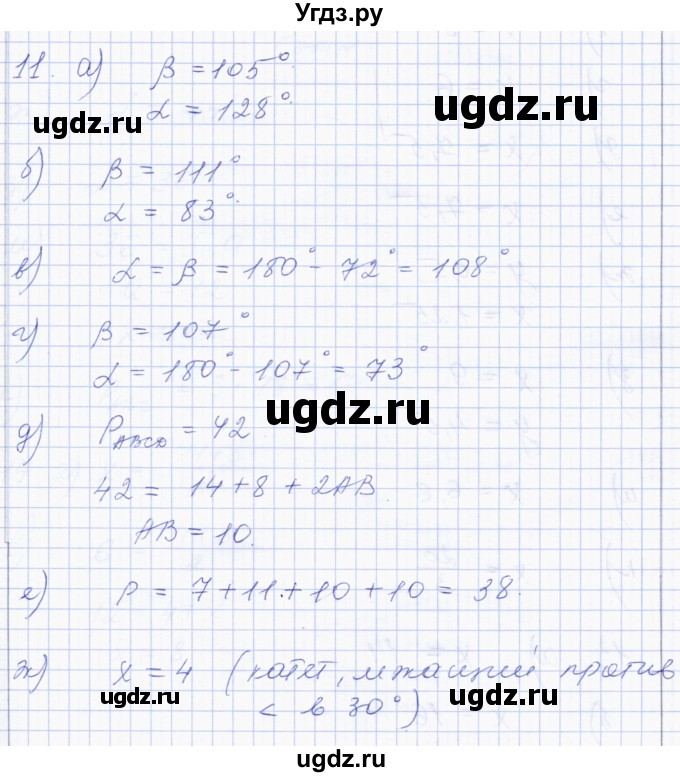 Угдз.ру
11. а) β = 105°.
α = 128°.
ugdz.ru
ugdz.ru
б) β = 111°
α = 83°.
в) α = β = 180° - 72° = 108°
г) β = 107°
α = 180° - 107° = 73°
ugdz.ru
д) PABCD = 42
42 = 14 + 8 + 2AB.
AB = 10.
е) P = 7 + 11 + 10 + 10 = 38.
ж) x = 4 (катет, лежащий против
< в 30°)
ugdz.ru
ugdz.ru
ugdz.ru